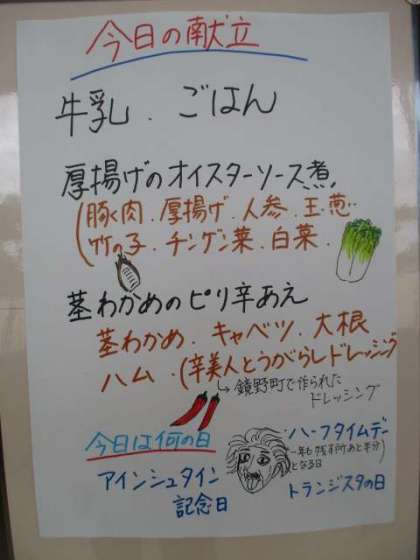 今日の献立
牛乳．ごはん
厚揚げのオイスターソース煮
(豚肉．厚揚げ．人参．玉葱
竹の子．チンゲン菜．白菜．
茎わかめのピリ辛あえ
茎わかめ．キャベツ．大根
ハム．(辛美人とうがらしドレッシング
↳鏡野町で作られた
ドレッシング
今日は何の日
アインシュタイン
記念日
ハーフタイムデー
一年も残す所あと半分
となる日
トランジスタの日